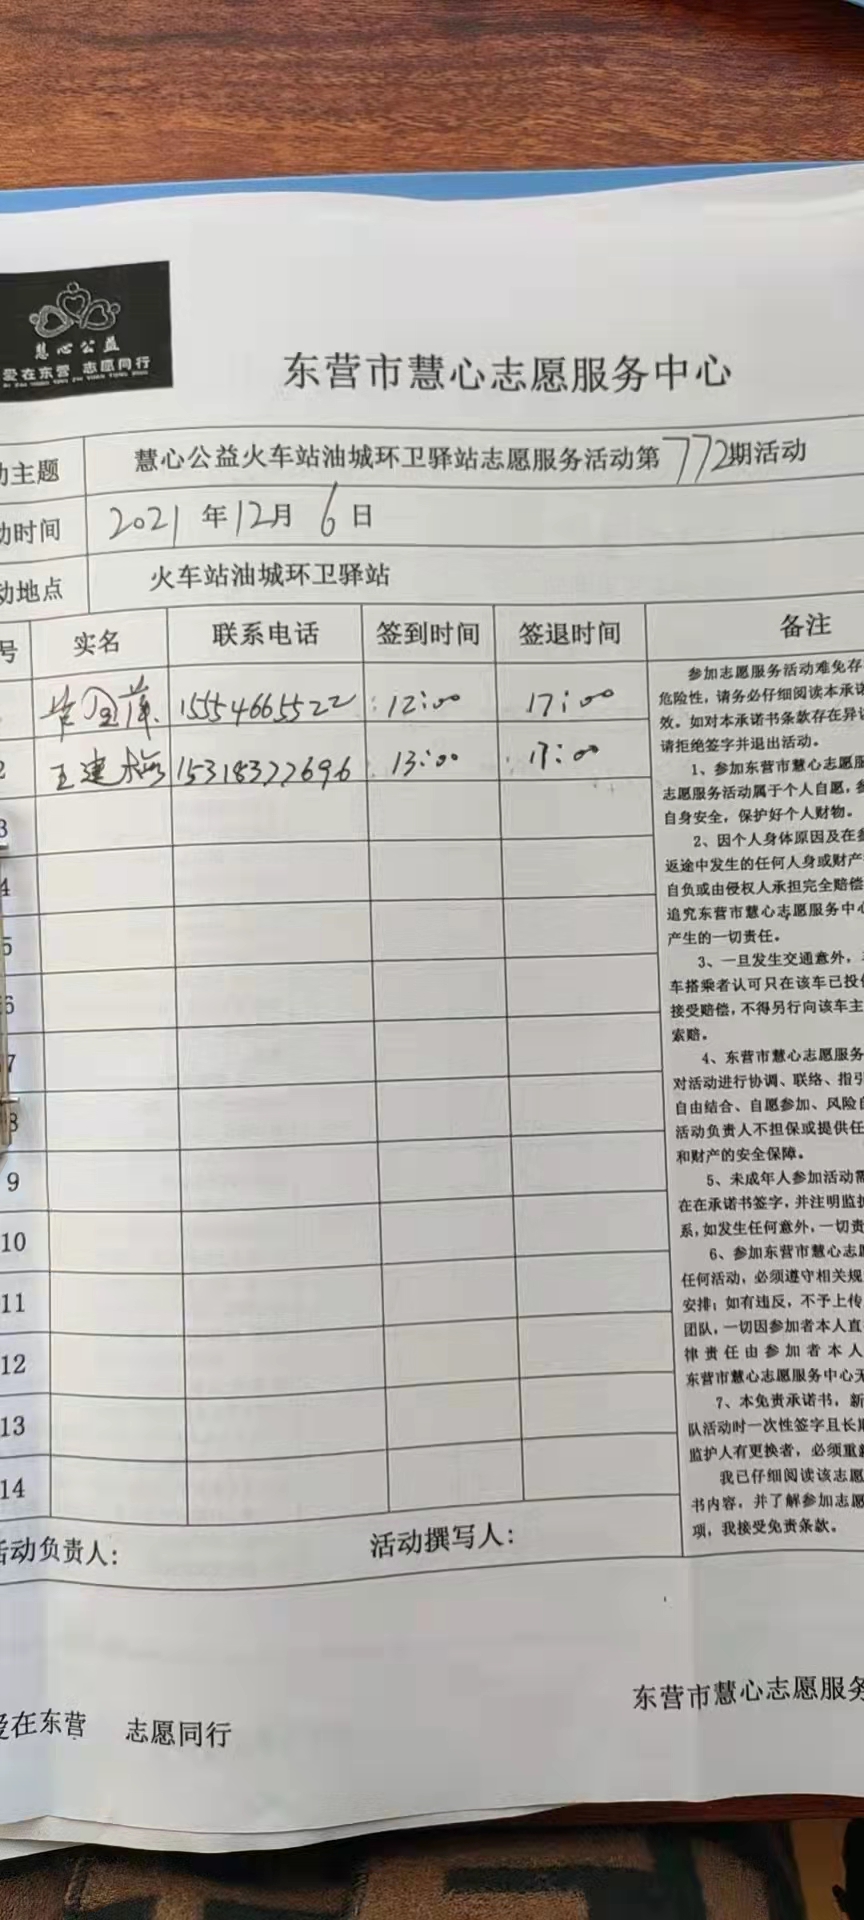 慧心公益
爱在东营 志愿同行
东营市慧心志愿服务中心
动主题 慧心公益火车站油城环卫驿站志愿服务活动第772期活动
动时间 2021年12月6日
动地点 火车站油城环卫驿站
号 实名 联系电话 签到时间 签退时间 备注
15554665522 12:00 17:00
2 王建梅 15318322696 13:00 17:00
3
4
5
6
7
8
9
10
11
12
13
14
参加志愿服务活动难免存
危险性，请务必仔细阅读本承诺
效。如对本承诺书条款存在异议
请拒绝签字并退出活动。
1、参加东营市慧心志愿服
志愿服务活动属于个人自愿，参
自身安全，保护好个人财物。
2、因个人身体原因及在参
返途中发生的任何人身或财产
自负或由侵权人承担完全赔偿
追究东营市慧心志愿服务中心
产生的一切责任。
3、一旦发生交通意外，
车搭乘者认可只在该车已投保
接受赔偿，不得另行向该车主
索赔。
4、东营市慧心志愿服务
对活动进行协调、联络、指引
自由结合、自愿参加、风险自
活动负责人不担保或提供任
和财产的安全保障。
5、未成年人参加活动需
在在承诺书签字，并注明监护
系，如发生任何意外，一切责
6、参加东营市慧心志愿
任何活动，必须遵守相关规
安排；如有违反，不予上传
团队，一切因参加者本人直
律责任由参加者本人
东营市慧心志愿服务中心无
7、本免责承诺书，新
队活动时一次性签字且长期
监护人有更换者，必须重新
我已仔细阅读该志愿
书内容，并了解参加志愿
项，我接受免责条款。
活动负责人： 活动撰写人：
东营市慧心志愿服务
爱在东营 志愿同行